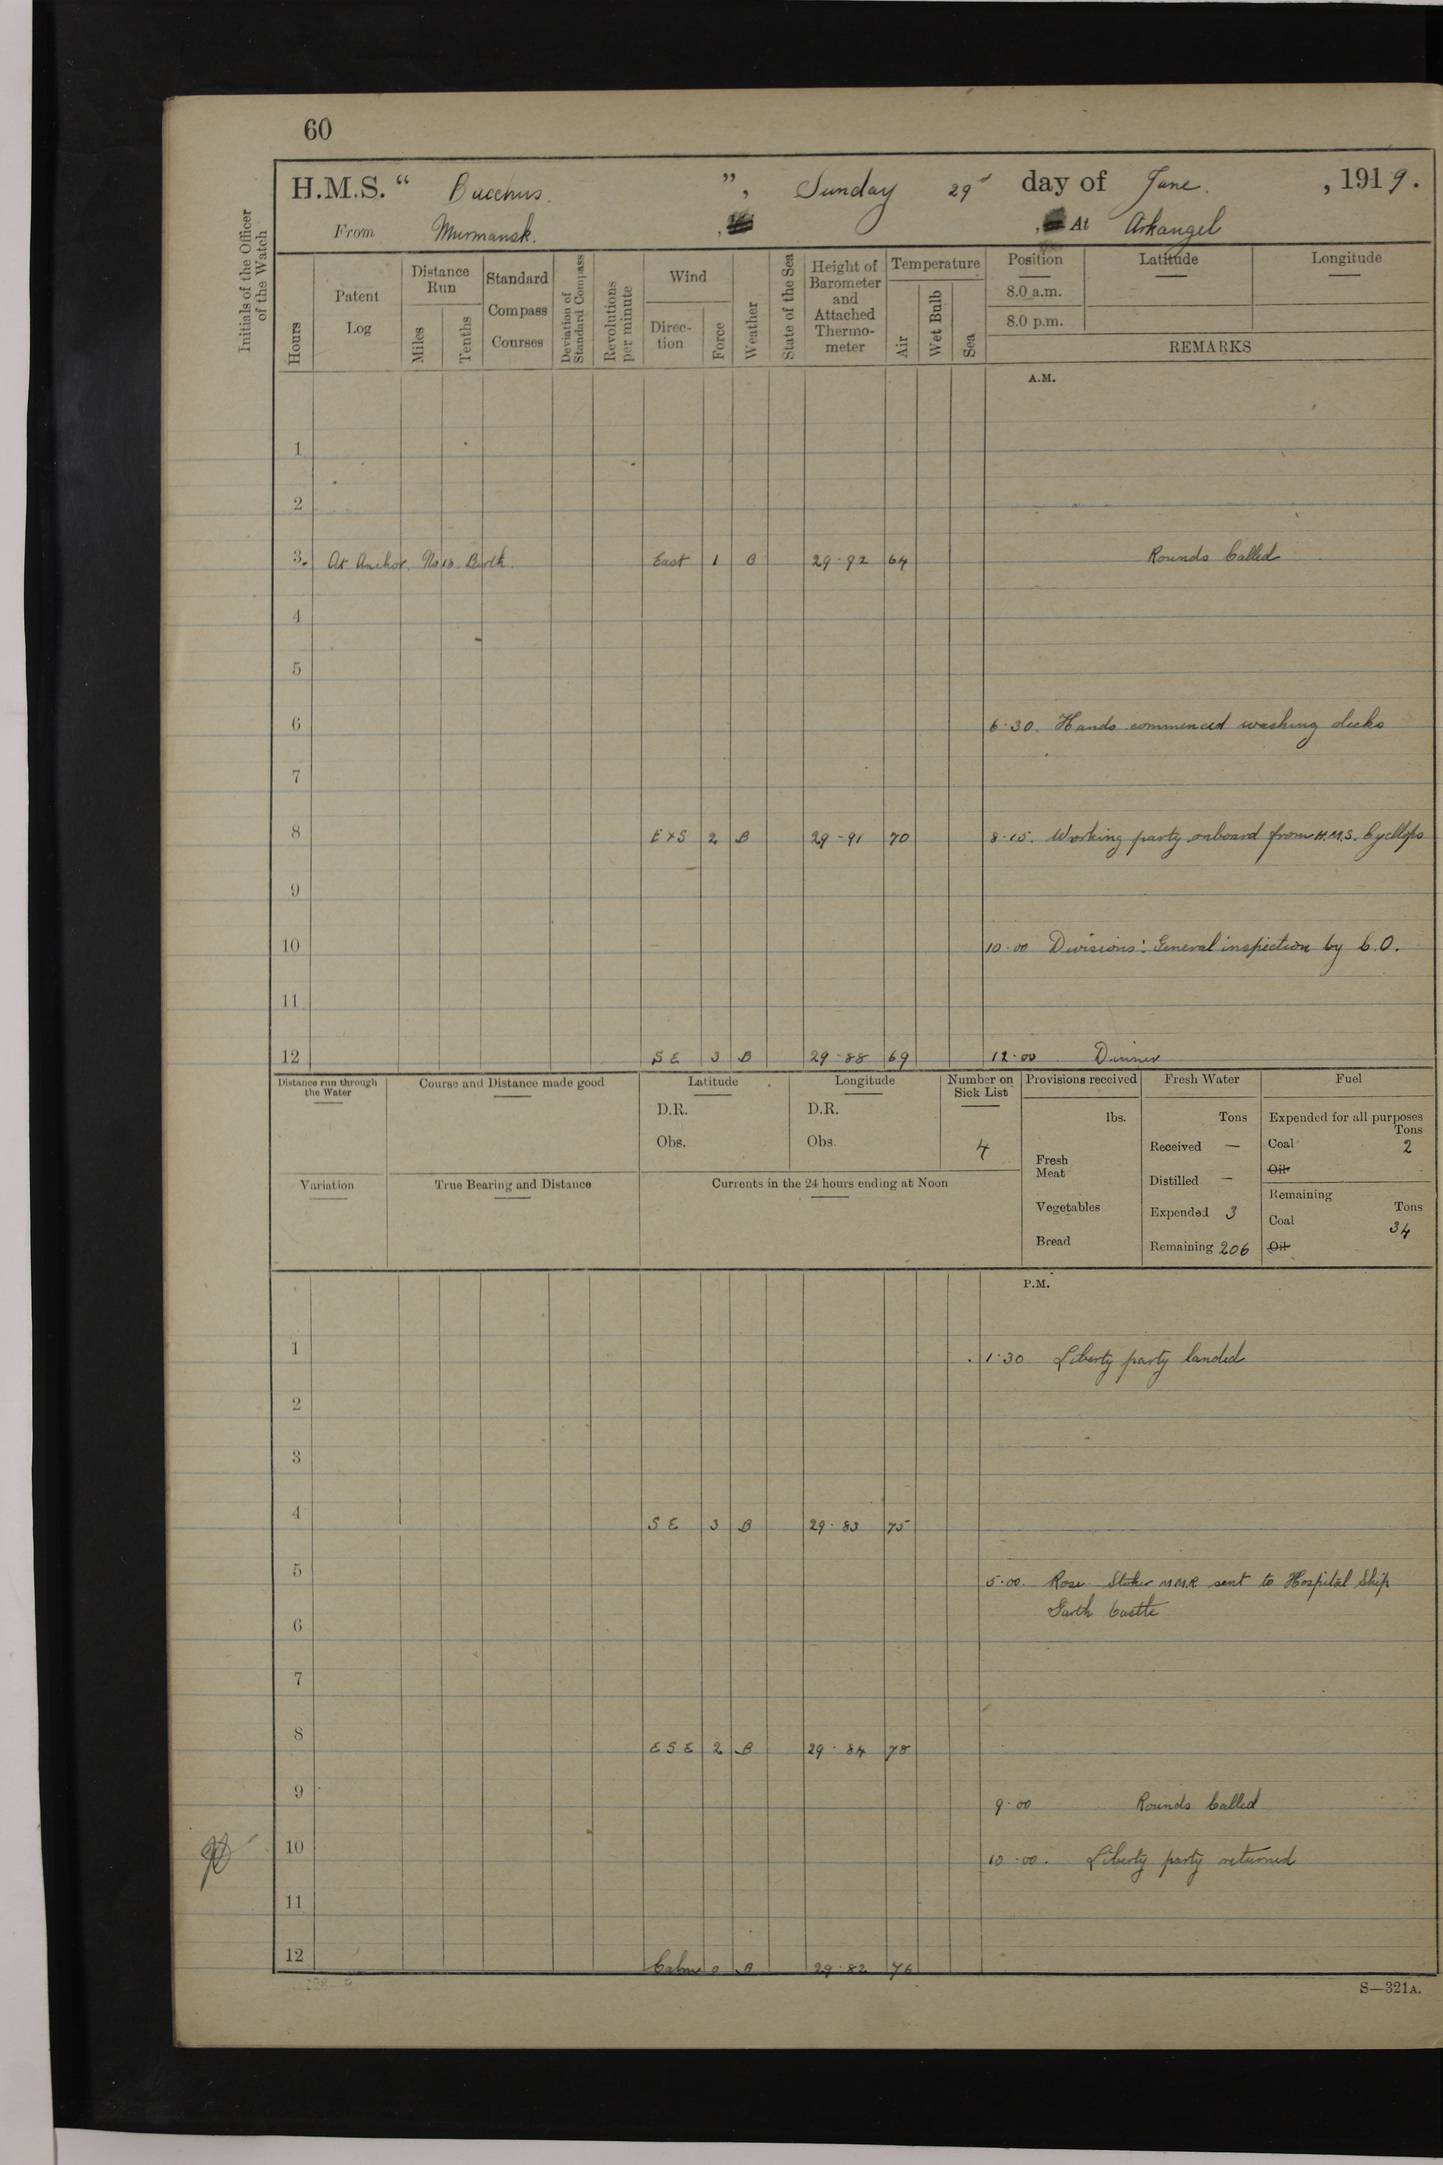 60
H.M.S. " Bacchus. ", Sunday 29 day of June. , 1919.
From Murmansk. , , At Arkangel
Initials of the Officer of the Watch
Hours
Patent Log
Distance Run
Miles
Tenths
Standard Compass Courses
Deviation of Standard Compass
Revolutions per minute
Wind
Direction
Force
Weather
State of the Sea
Height of Barometer and Attached Thermometer
Temperature
Air
Wet Bulb
Sea
Position
Latitude
Longitude
8.0 a.m.
8.0 p.m.
REMARKS
A.M.
1
2
3. At Anchor. No 10 Berth. East 1 B 29.92 64 Rounds Called
4
5
6 6.30. Hands commenced washing decks
7
8 E x S 2 B 29-91 70 8.15. Working party onboard from H.M.S. Cyclops
9
10 10.00 Divisions: General inspection by C.O.
11
12 S E 3 B 29.88 69 12.00 Dinner
Distance run through the Water
Course and Distance made good
Latitude
D.R.
Obs.
Longitude
D.R.
Obs.
Number on Sick List
4
Provisions received
lbs.
Fresh Meat
Vegetables
Bread
Fresh Water
Tons
Received —
Distilled —
Expended 3
Remaining 206
Fuel
Expended for all purposes
Tons
Coal 2
Oil
Remaining
Tons
Coal 34
Oil
Variation
True Bearing and Distance
Currents in the 24 hours ending at Noon
P.M.
1 1.30 Liberty party landed
2
3
4 S E 3 B 29.83 75
5 5.00. Rose Stoker M.M.R sent to Hospital Ship
Garth Castle
6
7
8 E S E 2 B 29.84 78
9 9.00 Rounds Called
10 10.00. Liberty party returned
11
12 Calm 0 B 29.82 76
S—321A.